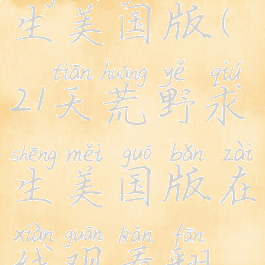 生美国版(
tiān huāng yě qiú
21天荒野求
shēng měi guó bǎn zài
生美国版在
xiàn guān kàn fān
线观看翻